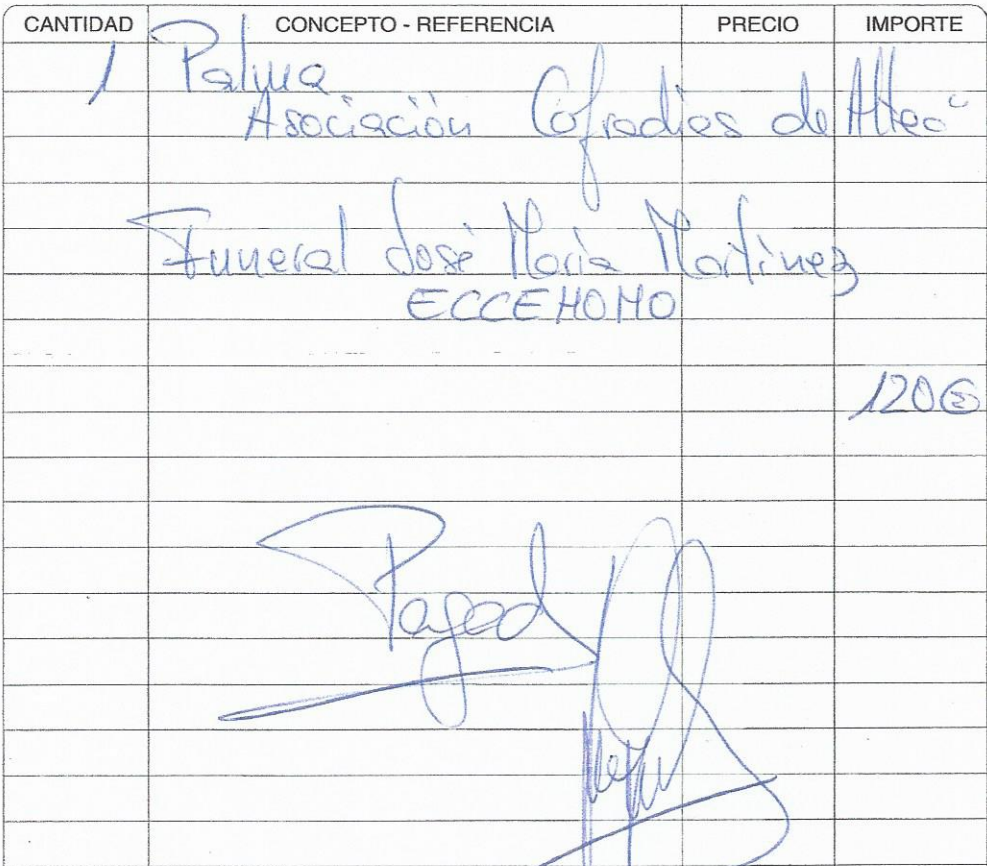 CANTIDAD CONCEPTO - REFERENCIA PRECIO IMPORTE
1 Palma
Asociación Cofradias de Altea
Funeral José María Martínez
ECCEHOMO
120€
Pagad